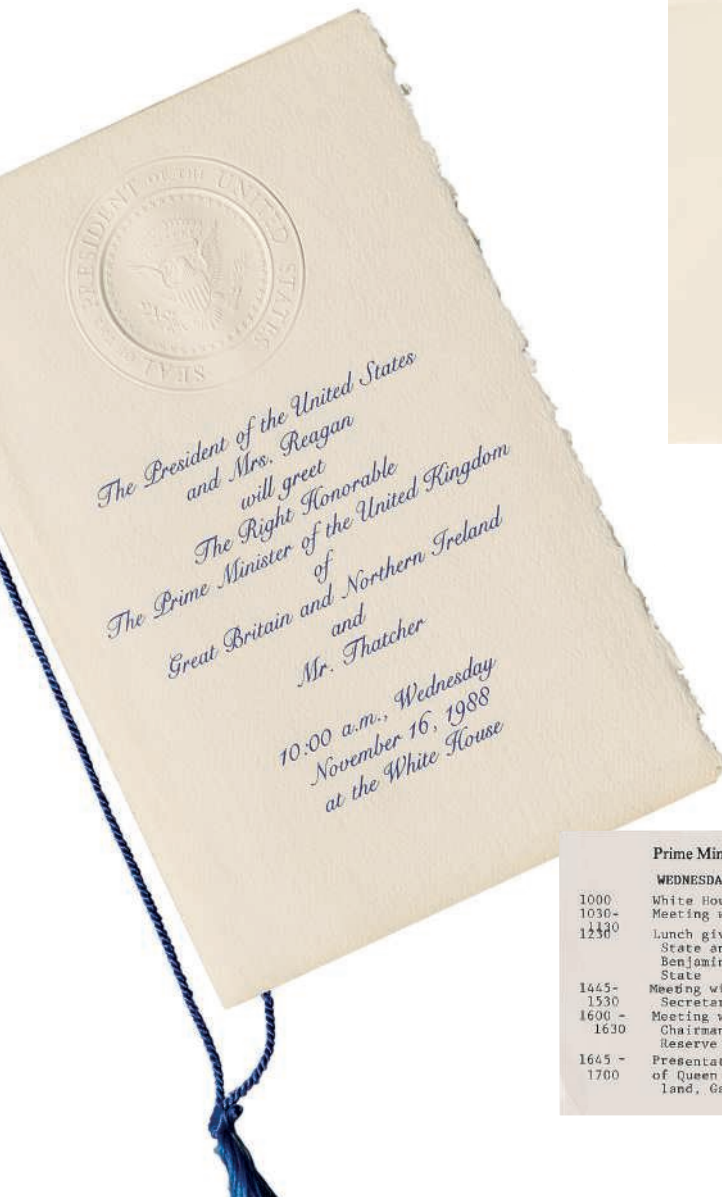 SEAL OF THE PRESIDENT OF THE UNITED STATES
The President of the United States
and Mrs. Reagan
will greet
The Right Honorable
The Prime Minister of the United Kingdom
of
Great Britain and Northern Ireland
and
Mr. Thatcher
10:00 a.m., Wednesday
November 16, 1988
at the White House
Prime Min
WEDNESDA
1000 White Hou
1030- Meeting w
1130
1230 Lunch giv
State an
Benjamin
State
1445- Meeting wi
1530 Secretar
1600 - Meeting w
1630 Chairman
Reserve
1645 - Presentat
1700 of Queen
land, Ga